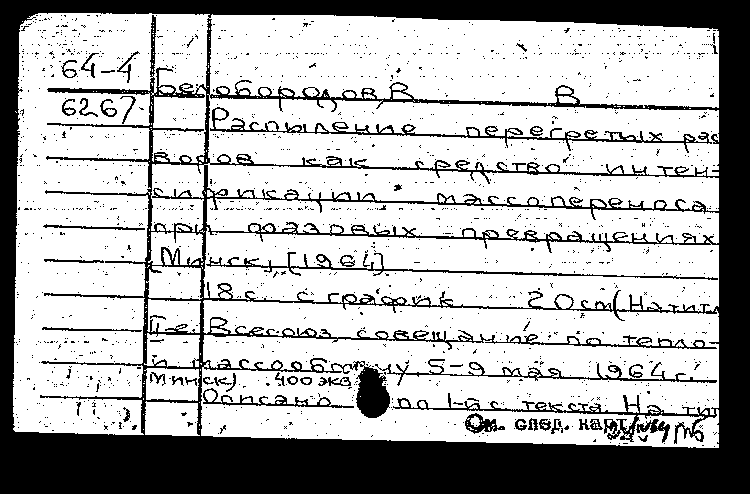 64-4
6267
Белобородов, В В
Распыление перегретых рас
воров как средство интен-
сификации массопереноса
при фазовых превращениях
[Минск], [1964]
18 с. с график 20 см (На титл
II-е Всесоюз. совещание по тепло-
и массообмену 5-9 мая 1964 г.
Минск) 400 экз
Описано по 1-й с текста. На тит
См. след. карт